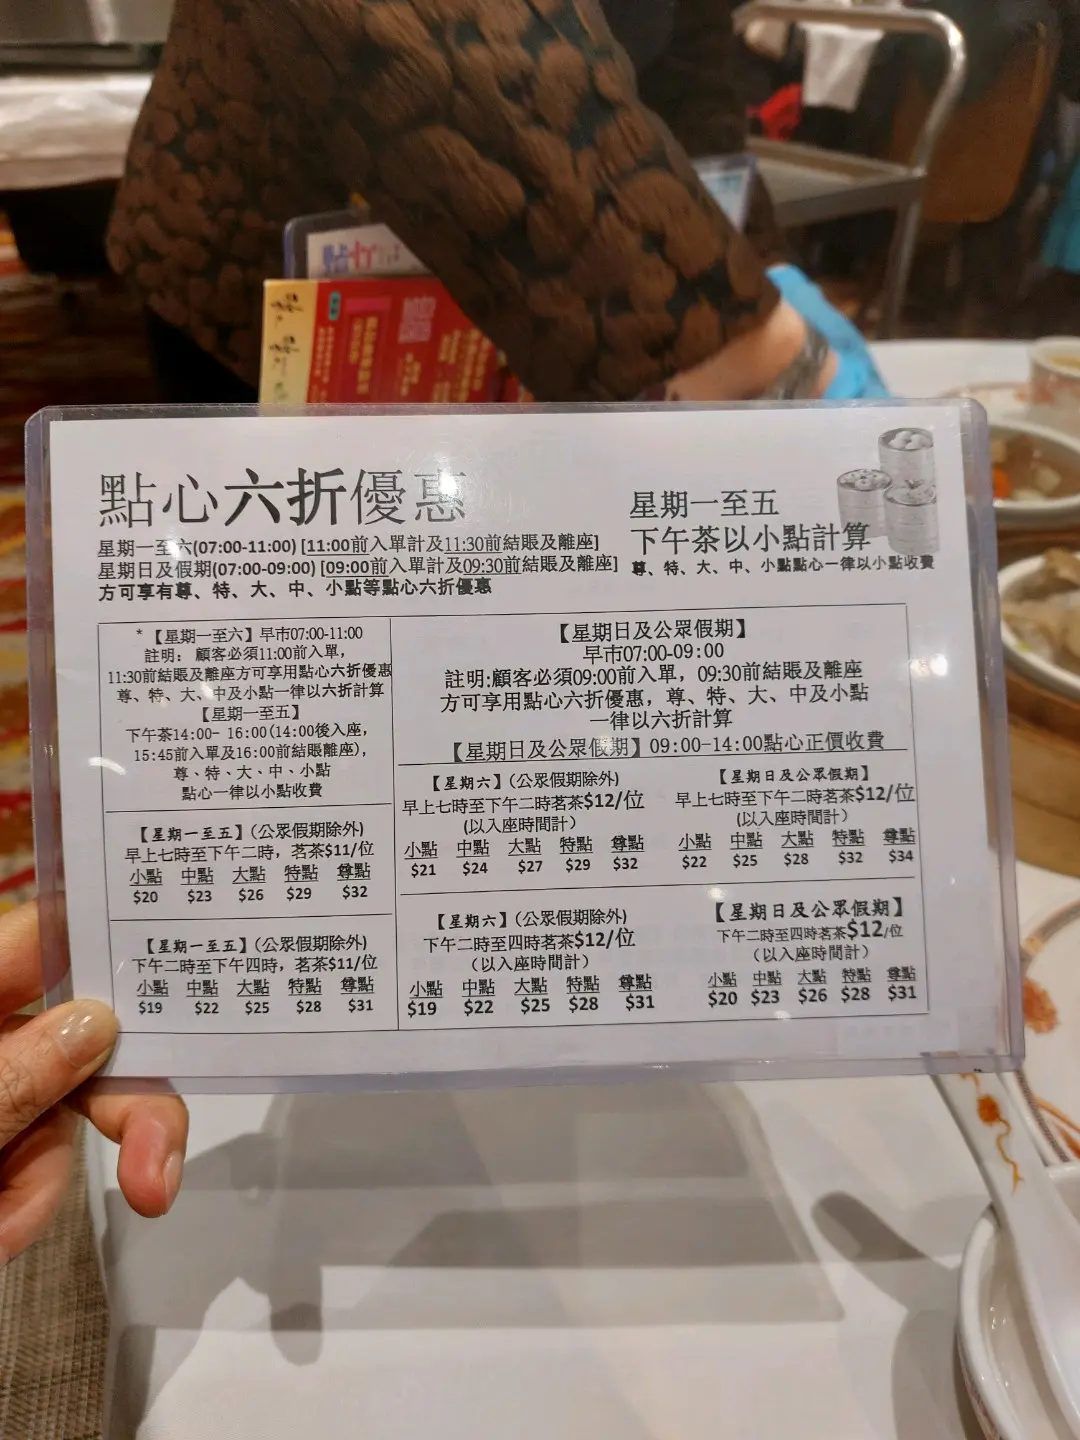 點心六折優惠
星期一至六(07:00-11:00) [11:00前入單計及11:30前結賬及離座]
星期日及假期(07:00-09:00) [09:00前入單計及09:30前結賬及離座]
方可享有尊、特、大、中、小點等點心六折優惠
星期一至五
下午茶以小點計算
尊、特、大、中、小點點心一律以小點收費
*【星期一至六】早市07:00-11:00
註明： 顧客必須11:00前入單，
11:30前結賬及離座方可享用點心六折優惠
尊、特、大、中及小點一律以六折計算
【星期一至五】
下午茶14:00- 16:00(14:00後入座，
15:45前入單及16:00前結賬離座)，
尊、特、大、中、小點
點心一律以小點收費
【星期日及公眾假期】
早市07:00-09:00
註明:顧客必須09:00前入單，09:30前結賬及離座
方可享用點心六折優惠，尊、特、大、中及小點
一律以六折計算
【星期日及公眾假期】09:00-14:00點心正價收費
【星期一至五】(公眾假期除外)
早上七時至下午二時，茗茶$11/位
小點 中點 大點 特點 尊點
$20 $23 $26 $29 $32
【星期六】(公眾假期除外)
早上七時至下午二時茗茶$12/位
(以入座時間計)
小點 中點 大點 特點 尊點
$21 $24 $27 $29 $32
【星期日及公眾假期】
早上七時至下午二時茗茶$12/位
(以入座時間計)
小點 中點 大點 特點 尊點
$22 $25 $28 $32 $34
【星期一至五】(公眾假期除外)
下午二時至下午四時，茗茶$11/位
小點 中點 大點 特點 尊點
$19 $22 $25 $28 $31
【星期六】(公眾假期除外)
下午二時至四時茗茶$12/位
(以入座時間計)
小點 中點 大點 特點 尊點
$19 $22 $25 $28 $31
【星期日及公眾假期】
下午二時至四時茗茶$12/位
(以入座時間計)
小點 中點 大點 特點 尊點
$20 $23 $26 $28 $31